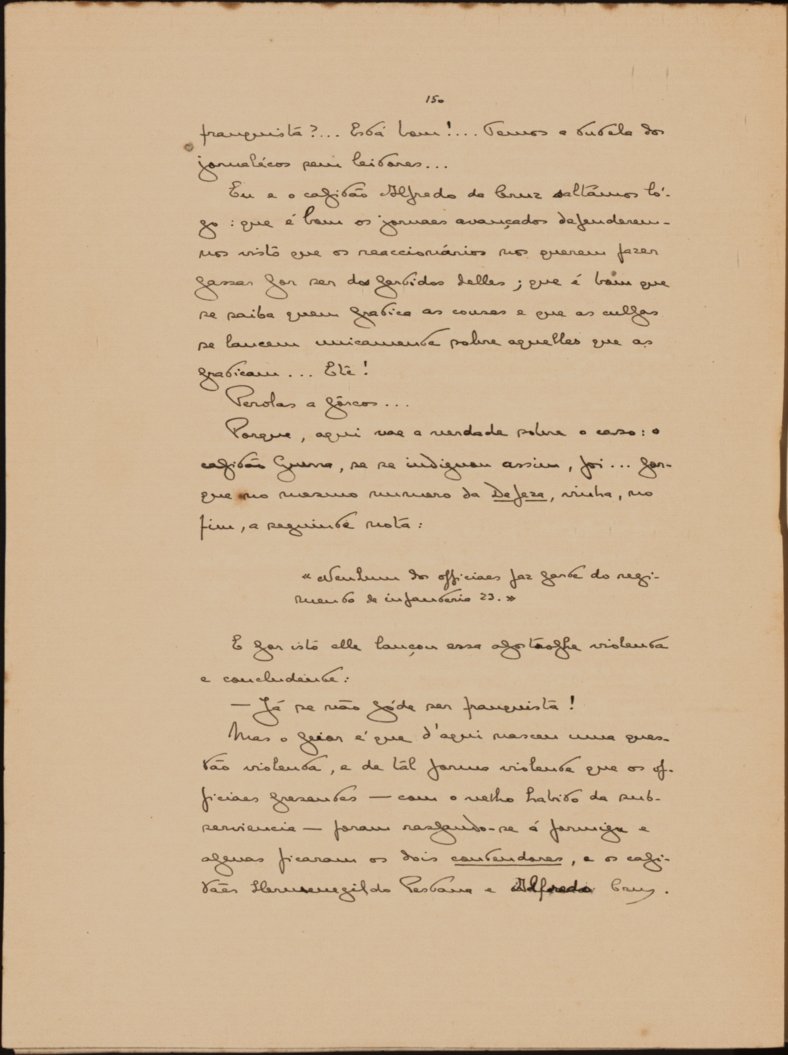 150
franquista?... Está bem!... Temos a tutela dos
jornalécos sem leitores...
Eu e o capitão Alfredo da Cruz saltámos ló-
go: que é bom os jornaes avançados defenderem-
nos visto que os reaccionários nos querem fazer
passar por ser dos partidos delles; que é bom que
se saiba quem pratica as cousas e que as culpas
se lancem unicamente sobre aquelles que as
praticam... Etc!
Perolas a pórcos...
Porque, aqui vae a verdade sobre o caso: o
capitão Guerra, se se indignou assim, foi... por-
que no mesmo numero da Defeza, vinha, no
fim, a seguinte nota:
«Nenhum dos officiaes faz parte do regi-
mento de infanteria 23.»
E por isto elle lançou essa apostrophe violenta
e concludente:
— Já se não póde ser franquista!
Mas o peior é que d'aqui nasceu uma ques-
tão violenta, e de tál forma violenta que os of-
ficiaes presentes — com o velho habito da sub-
serviencia — foram raspando-se á formiga e
apenas ficaram os dois contendores, e os capi-
tães Hermenegildo Pestana e Alfredo Cruz.